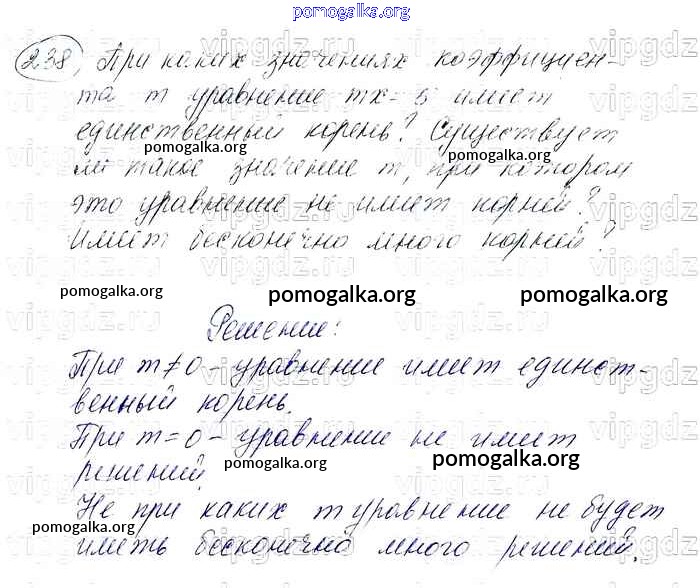 pomogalka.org
238, При каких значениях коэффициен-
та m уравнение mx=5 имеет
единственный корень? Существует
pomogalka.org pomogalka.org
ли такое значение m, при котором
это уравнение не имеет корней?
pomogalka.org pomogalka.org
Имеет бесконечно много корней?
pomogalka.org pomogalka.org pomogalka.org
Решение:
При m≠0 - уравнение имеет единст-
венный корень.
pomogalka.org pomogalka.org
При m=0 - уравнение не имеет
решений.
pomogalka.org pomogalka.org
Не при каких m уравнение не будет
pomogalka.org pomogalka.org
иметь бесконечно много решений.